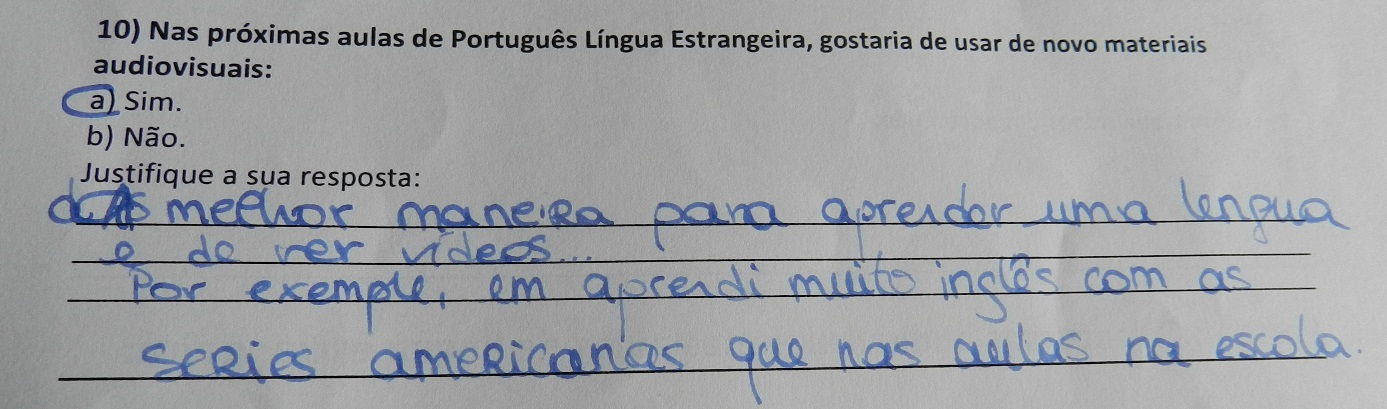 10) Nas próximas aulas de Português Língua Estrangeira, gostaria de usar de novo materiais
audiovisuais:
a) Sim.
b) Não.
Justifique a sua resposta:
As melhor maneira para aprender uma lengua
e de ver vídeos...
Por exemple, em aprendi muito inglês com as
series americanas que nas aulas na escola.